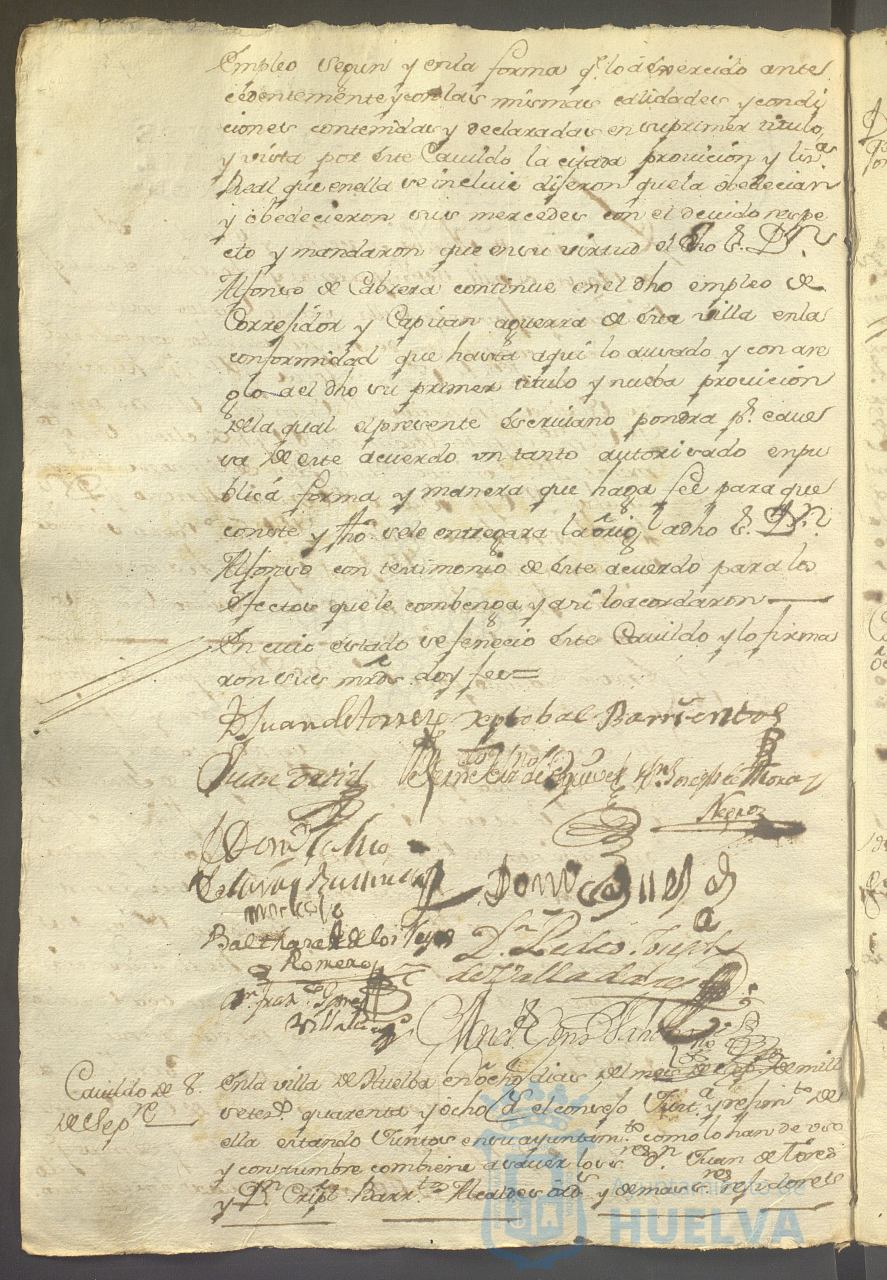 Empleo segun y enla forma q.^e lo à exercido ante
cedentemente y con las mismas calidades y condi
ciones contenidas y declaradas en su primer titulo,
y vista por este Cavildo la citada provicion y lis.^as
Real que en ella se incluie dijeron que la obedecian
y obedecieron sus mercedes con el devido respe
cto y mandaron que en su virtud el dho S.^r D.^n
Alfonso de Cabrera continue en el dho empleo de
Correjidor y Capitan aguerra de esta villa enla
conformidad que hasta aqui lo a usado y con arre
glo a el dho su primer titulo y nueba provicion
de la qual el presente escrivano pondra p.^r caves
sa de este acuerdo un tanto autorisado en pu
blica forma y manera que haga fee para que
conste y fho se le entregara la orig.^l a dho S.^r D.^n
Alfonso con testimonio de este acuerdo para los
efectos que le combenga y asi lo acordaron
En cuio estado se fenecio este Cavildo y lo firma
ron sus mrds doy fee=
D Juan de Torres Xptobal Barrientos
Juan David Joseph de Mora
Negro
Balthazar de los Reyes D.^n Pedro Joseph
Romero de Valladares
Fran.^co
Cavildo de 8. Enla villa de Huelba en ocho dias del mes de Sep.^e de mill
de Sep.^re setes.^s quarenta y ocho a.^s el consejo Just.^a y rejim.^to de
ella estando Juntos en su ayuntam.^to como lo han de uso
y costumbre combiene a saver los s.^res D.^n Juan de Torres
y D.^n Cristl Barr.^tos Alcaldes ord.^s y demas s.^res rejidores
Ayuntamiento de
HUELVA